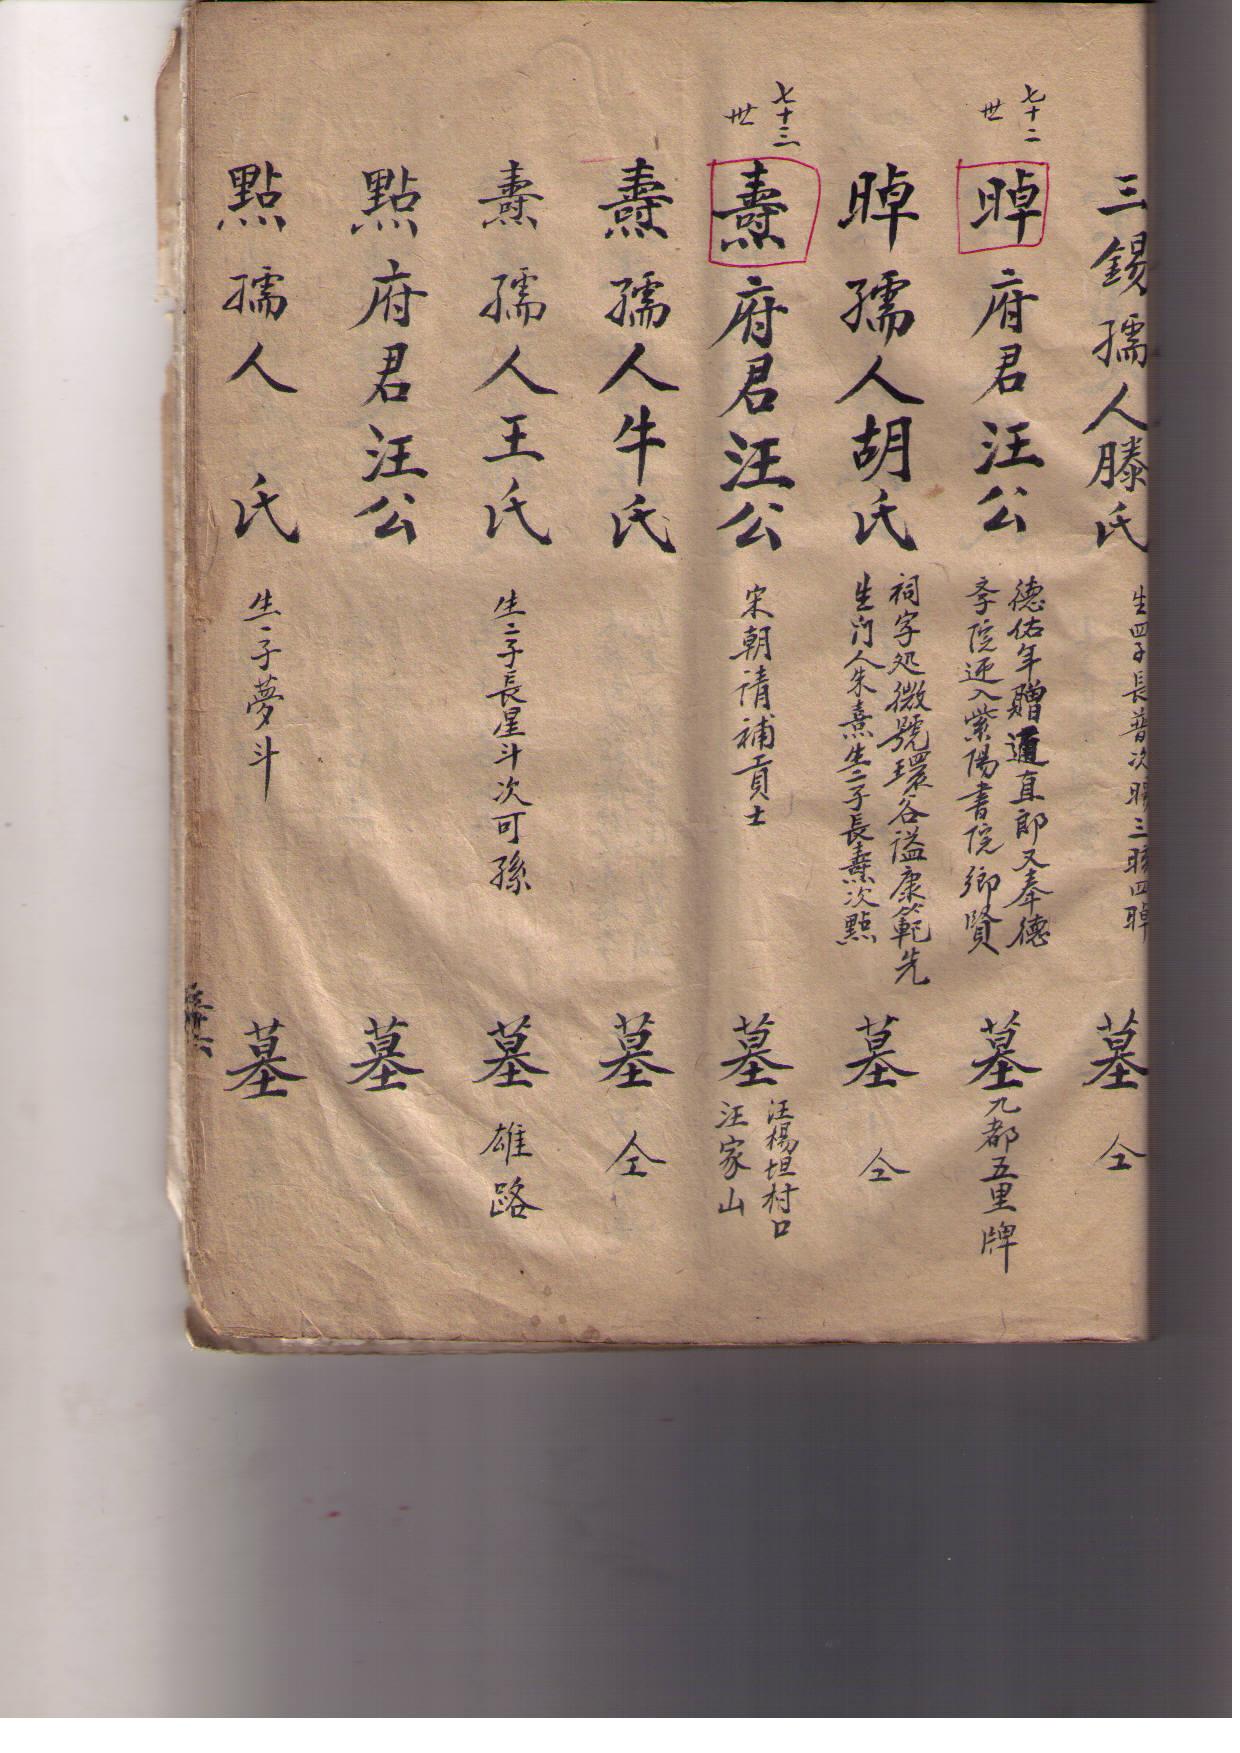 三錫孺人滕氏 生四子長普次暘三晐四晫 墓 仝
七十二
世
晫府君汪公 德佑年贈通直郎又奉德
孝院迎入紫陽書院鄉賢 墓 九都五里牌
晫孺人胡氏 祠字処微號環谷謚康範先
生門人朱熹生二子長燾次點 墓 仝
七十三
世
燾府君汪公 宋朝請補貢士 墓 汪楊坦村口
汪家山
燾孺人牛氏 墓 仝
燾孺人王氏 生二子長星斗次可孫 墓 雄路
點府君汪公 墓
點孺人 氏 生一子夢斗 墓